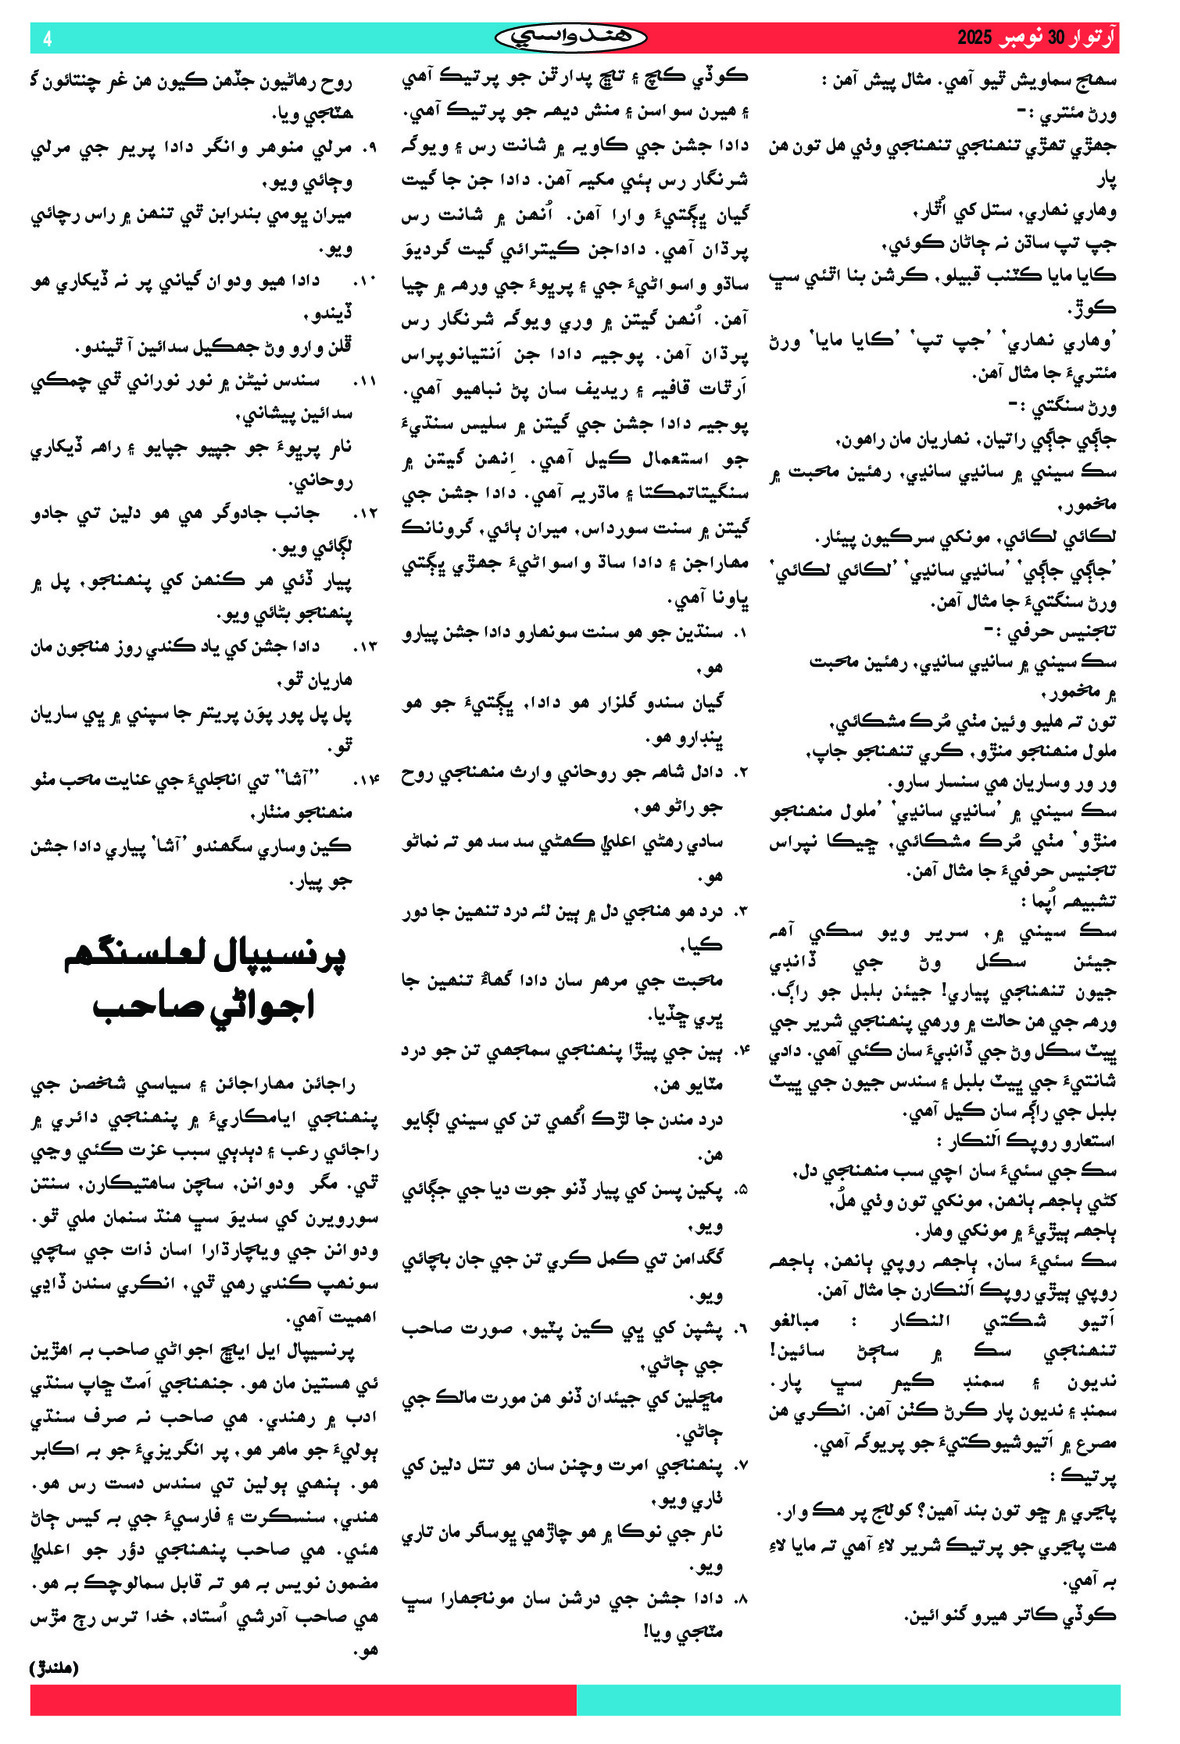 آرتوار 30 نومبر 2025
هندواسي
4
سھاڄ سماويش ٿيو آھي. مثال پيش آھن :
ورڻ مئتري :-
جھڙي تھڙي تنھنجي تنھنجي وٺي ھل تون ھن
پار
وھاري نھاري، ستل کي اُٿار،
جپ تپ ساڌن نہ ڄاڻان ڪوئي،
ڪايا مايا ڪٽنب قبيلو، ڪرشن بنا اٿئي سڀ
ڪوڙ.
’وھاري نھاري‘ ’جپ تپ‘ ’ڪايا مايا‘ ورڻ
مئتريءَ جا مثال آھن.
ورڻ سنگتي :-
جاڳي جاڳي راتيان، نھاريان مان راھون،
سڪ سيني ۾ سانڍي سانڍي، رھئين محبت ۾
مخمور،
لڪائي لڪائي، مونکي سرڪيون پيئار.
’جاڳي جاڳي‘ ’سانڍي سانڍي‘ ’لڪائي لڪائي‘
ورڻ سنگتيءَ جا مثال آھن.
تجنيس حرفي :-
سڪ سيني ۾ سانڍي سانڍي، رھئين محبت
۾ مخمور،
تون تہ ھليو وئين مٺي مُرڪ مشڪائي،
ملول منھنجو منڙو، ڪري تنھنجو جاپ،
ور ور وساريان ھي سنسار سارو.
سڪ سيني ۾ ’سانڍي سانڍي‘ ’ملول منھنجو
منڙو‘ مٺي مُرڪ مشڪائي، ڇيڪا نپراس
تجنيس حرفيءَ جا مثال آھن.
تشبيھہ اُپما :
سڪ سيني ۾، سرير ويو سڪي آھہ
جيئن سڪل وڻ جي ڏانڊي
جيون تنھنجي پياري! جيئن بلبل جو راڳ.
ورھہ جي ھن حالت ۾ ورھي پنھنجي شرير جي
ڀيٽ سڪل وڻ جي ڏانڊيءَ سان ڪئي آھي. دادي
شانتيءَ جي ڀيٽ بلبل ۽ سندس جيون جي ڀيٽ
بلبل جي راڳہ سان ڪيل آھي.
استعارو روپڪ اَلنڪار :
سڪ جي سئيءَ سان اچي سب منھنجي دل،
کڻي ٻاجھہ ٻانھن، مونکي تون وٺي ھلُ،
ٻاجھہ ٻيڙيءَ ۾ مونکي وھار.
سڪ سئيءَ سان، ٻاجھہ روپي ٻانھن، ٻاجھہ
روپي ٻيڙي روپڪ اَلنڪارن جا مثال آھن.
اَتيو شڪتي النڪار : مبالغو
تنھنجي سڪ ۾ سڄڻ سائين!
نديون ۽ سمنڊ ڪيم سڀ پار.
سمنڊ ۽ نديون پار ڪرڻ ڪٺن آھن. انڪري ھن
مصرع ۾ اَتيوشيوڪتيءَ جو پريوگہ آھي.
پرتيڪ :
پڃري ۾ ڇو تون بند آھين؟ کولج پر ھڪ وار.
ھت پڃري جو پرتيڪ شرير لاءِ آھي تہ مايا لاءِ
بہ آھي.
ڪوڏي ڪاتر ھيرو گنوائين.
ڪوڏي ڪچ ۽ تڇ پدارٿن جو پرتيڪ آھي
۽ ھيرن سواسن ۽ منش ديھہ جو پرتيڪ آھي.
دادا جشن جي ڪاويہ ۾ شانت رس ۽ ويوگہ
شرنگار رس ٻئي مکيہ آھن. دادا جن جا گيت
گيان ڀڳتيءَ وارا آھن. اُنھن ۾ شانت رس
پرڌان آھي. داداجن ڪيترائي گيت گرديوَ
ساڌو واسواڻيءَ جي ۽ پرڀوءَ جي ورھہ ۾ چيا
آھن. اُنھن گيتن ۾ وري ويوگہ شرنگار رس
پرڌان آھن. پوجيہ دادا جن اَنتيانوپراس
اَرٿات قافيہ ۽ رديف سان پڻ نباھيو آھي.
پوجيہ دادا جشن جي گيتن ۾ سليس سنڌيءَ
جو استعمال ڪيل آھي. اِنھن گيتن ۾
سنگيتاتمڪتا ۽ ماڌريہ آھي. دادا جشن جي
گيتن ۾ سنت سورداس، ميران ٻائي، گرونانڪ
مھاراجن ۽ دادا ساڌ واسواڻيءَ جھڙي ڀڳتي
ڀاونا آھي.
۱. سنڌين جو ھو سنت سونھارو دادا جشن پيارو
ھو،
گيان سندو گلزار ھو دادا، ڀڳتيءَ جو ھو
ڀنڊارو ھو.
۲. دادل شاھہ جو روحاني وارث منھنجي روح
جو راڻو ھو،
سادي رھڻي اعليٰ ڪھڻي سد سد ھو تہ نماڻو
ھو.
۳. درد ھو ھنجي دل ۾ ٻين لئہ درد تنھين جا دور
ڪيا،
محبت جي مرھم سان دادا گھاءُ تنھين جا
ڀري ڇڏيا.
۴. ٻين جي پيڙا پنھنجي سمجھي تن جو درد
مٽايو ھن،
درد مندن جا لڙڪ اُگھي تن کي سيني لڳايو
ھن.
۵. پکين پسن کي پيار ڏنو جوت ديا جي جڳائي
ويو،
گگدامن تي ڪمل ڪري تن جي جان بچائي
ويو.
۶. پشپن کي ڀي ڪين پٽيو، صورت صاحب
جي ڄاڻي،
مڇلين کي جيئدان ڏنو ھن مورت مالڪ جي
ڄاڻي.
۷. پنھنجي امرت وچنن سان ھو تتل دلين کي
ٺاري ويو،
نام جي نوڪا ۾ ھو چاڙھي ڀوساگر مان تاري
ويو.
۸. دادا جشن جي درشن سان مونجھارا سڀ
مٽجي ويا!
روح رھاڻيون جڏھن ڪيون ھن غم چنتائون گ
ھٽجي ويا.
۹. مرلي منوھر وانگر دادا پريم جي مرلي
وڄائي ويو،
ميران ڀومي بندرابن ٿي تنھن ۾ راس رچائي
ويو.
۱۰. دادا ھيو ودوان گياني پر نہ ڏيکاري ھو
ڏيندو،
ڦلن وارو وڻ جھڪيل سدائين آ ٿيندو.
۱۱. سندس نيڻن ۾ نور نوراني ٿي چمڪي
سدائين پيشاني،
نام پرڀوءَ جو جپيو جپايو ۽ راھہ ڏيکاري
روحاني.
۱۲. جانب جادوگر ھي ھو دلين تي جادو
لڳائي ويو.
پيار ڏئي ھر ڪنھن کي پنھنجو، پل ۾
پنھنجو بڻائي ويو.
۱۳. دادا جشن کي ياد ڪندي روز ھنجون مان
ھاريان ٿو،
پل پل پور پوَن پريتم جا سپني ۾ ڀي ساريان
ٿو.
۱۴. ’’آشا‘‘ تي انجليءَ جي عنايت محب مٺو
منھنجو منٺار،
ڪين وساري سگھندو ’آشا‘ پياري دادا جشن
جو پيار.
پرنسيپال لعلسنگھہ
اجواڻي صاحب
راجائن مھاراجائن ۽ سياسي شخصن جي
پنھنجي ايامڪاريءَ ۾ پنھنجي دائري ۾
راجائي رعب ۽ دٻدٻي سبب عزت ڪئي وڃي
ٿي. مگر ودوانن، سچن ساھتيڪارن، سنتن
سورويرن کي سديوَ سڀ ھنڌ سنمان ملي ٿو.
ودوانن جي ويچارڌارا اسان ذات جي سچي
سونھپ ڪندي رھي ٿي، انڪري سندن ڏاڍي
اھميت آھي.
پرنسيپال ايل ايڇ اجواڻي صاحب بہ اھڙين
ئي ھستين مان ھو. جنھنجي اَمٽ ڇاپ سنڌي
ادب ۾ رھندي. ھي صاحب نہ صرف سنڌي
ٻوليءَ جو ماھر ھو، پر انگريزيءَ جو بہ اڪابر
ھو. ٻنھي ٻولين تي سندس دست رس ھو.
ھندي، سنسڪرت ۽ فارسيءَ جي بہ کيس ڄاڻ
ھئي. ھي صاحب پنھنجي دؤر جو اعليٰ
مضمون نويس بہ ھو تہ قابل سمالوچڪ بہ ھو.
ھي صاحب آدرشي اُستاد، خدا ترس رڄ مڙس
ھو.
(ھلندڙ)